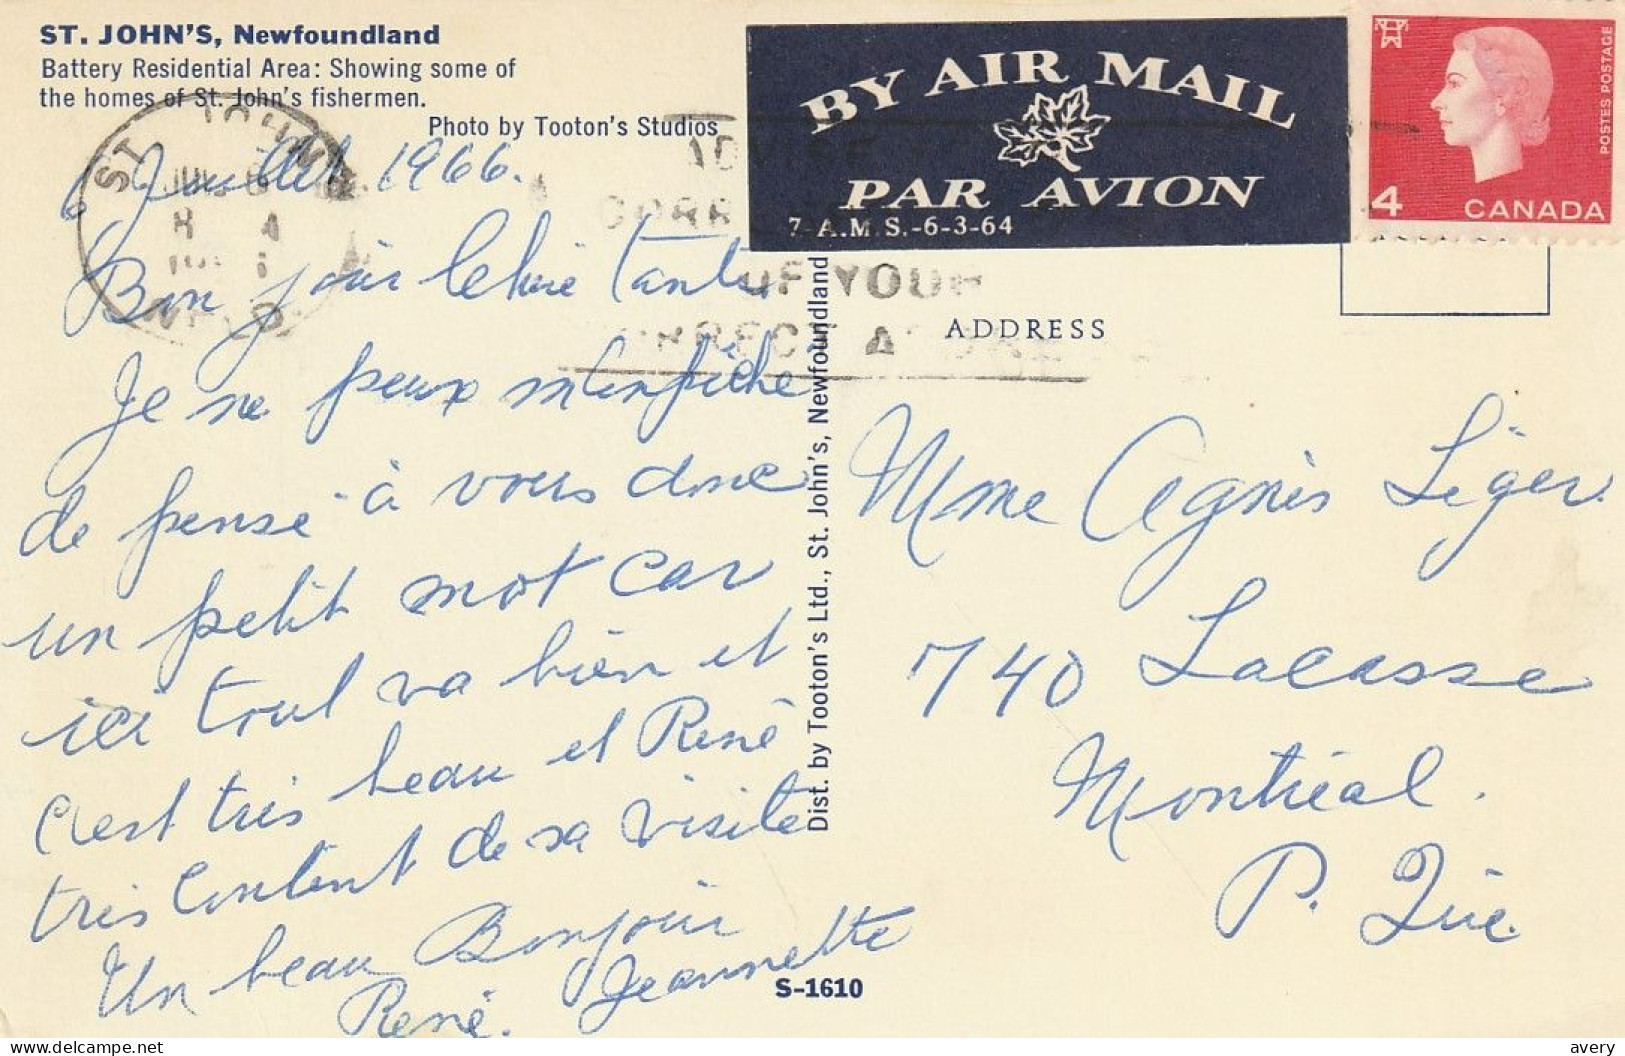 ST. JOHN'S, Newfoundland
Battery Residential Area: Showing some of
the homes of St. John's fishermen.
Photo by Tooton's Studios
BY AIR MAIL
PAR AVION
7-A.M.S.-6-3-64
POSTES POSTAGE
4 CANADA
ST. JOHN'S
NFLD
OF YOUR
CORRECT
ADDRESS
Juillet 1966.
Bon jour chère tante
Je ne peux m'enpêche
de pensé à vous donc
un petit mot car
ici tout va bien et
c'est très beau et René
très content de sa visite
Un beau Bonjour
René. Jeannette
Dist. by Tooton's Ltd., St. John's, Newfoundland
S-1610
Mme Agnès Léger.
740 Lacasse
Montréal.
P. Qué.
avery